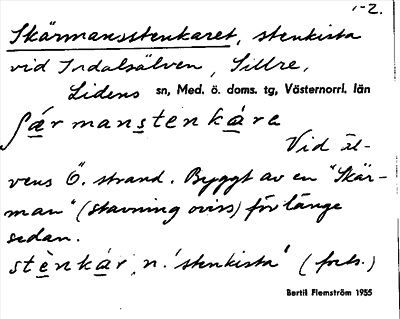 1-2.
Skärmansstenkaret, stenkista
vid Indalsälven, Sillre,
Lidens sn, Med. ö. doms. tg, Västernorrl. län
ʃærmanstenkára
Vid äl-
vens Ö. strand. Byggt av en "Skär-
man" (stavning oviss) för länge
sedan.
stènkár, n. 'stenkista' (forts.)
Bertil Flemström 1955